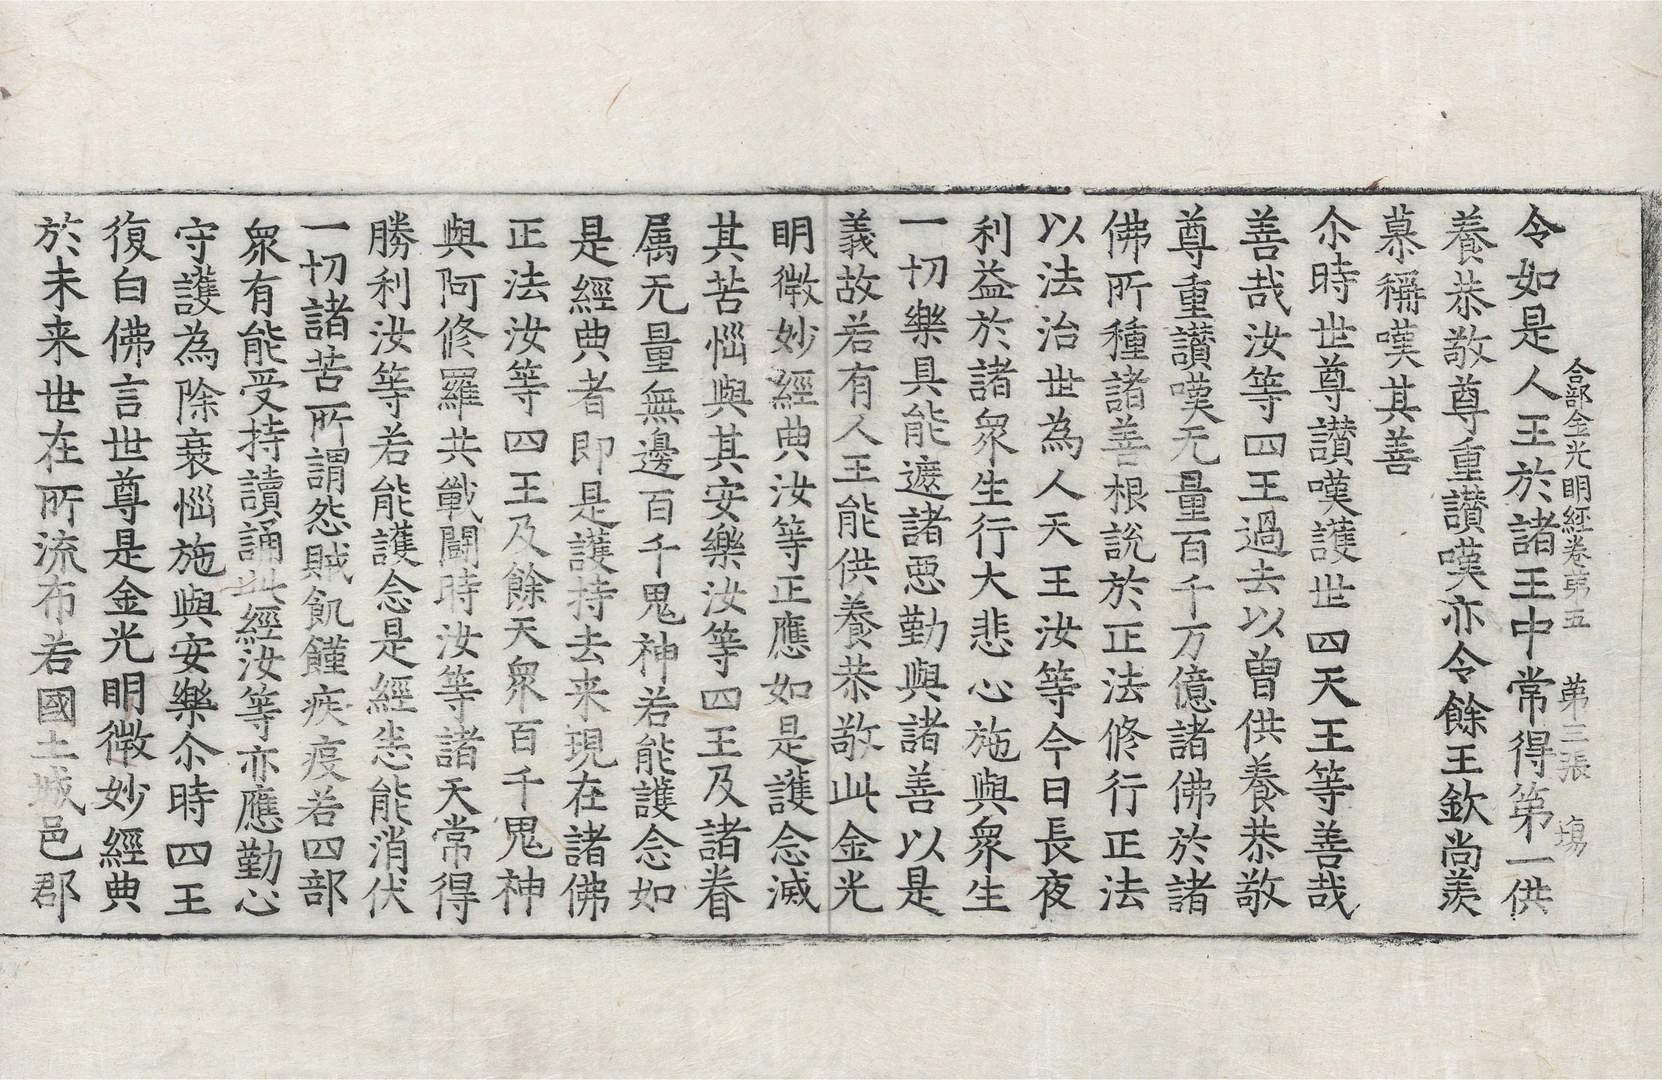 合部金光明經卷苐五　苐三張　塲
令如是人王於諸王中常得苐一供
養恭敬尊重讃嘆亦令餘王欽尚羨
慕稱嘆其善
尒時世尊讃嘆護世四天王等善㢤
善㢤汝等四王過去以曽供養恭敬
尊重讃嘆无量百千万億諸佛於諸
佛所種諸善根說於正法修行正法
以法治世為人天王汝等今日長夜
利益於諸衆生行大悲心施與衆生
一切樂具能遮諸惡勤與諸善以是
義故若有人王能供養恭敬此金光
明微妙經典汝等正應如是護念滅
其苦惱與其安樂汝等四王及諸眷
属无量無邊百千鬼神若能護念如
是經典者即是護持去来現在諸佛
正法汝等四王及餘天衆百千鬼神
與阿修羅共戰鬪時汝等諸天常得
勝利汝等若能護念是經悉能消伏
一切諸苦所謂怨賊飢饉疾疫若四部
衆有能受持讀誦此經汝等亦應勤心
守護為除衰惱施與安樂尒時四王
復白佛言世尊是金光明微妙經典
於未来世在所流布若國土城邑郡